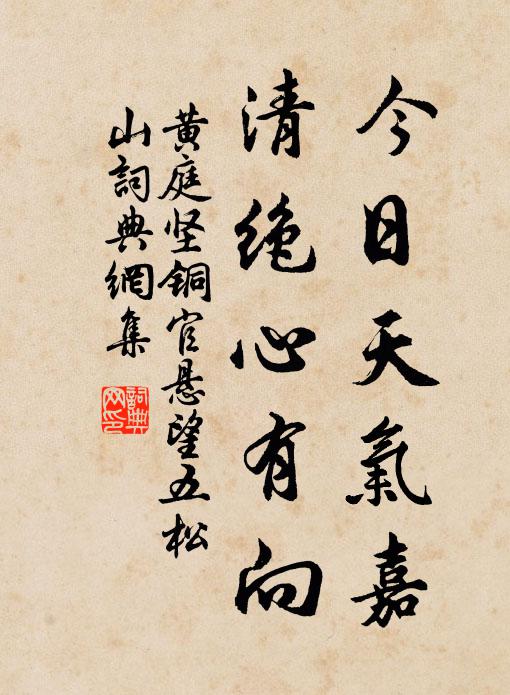 今日天氣嘉
清絶心有向
黄庭坚铜官悬望五松
山詞典網集
詞典網印